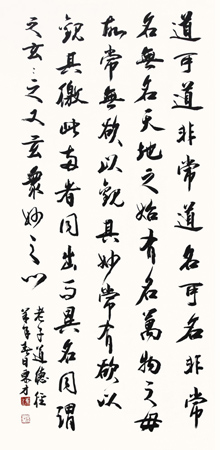 道可道非常道名可名非常
名無名天地之始有名萬物之毋
故常無欲以觀其妙常有欲以
觀其徼此兩者同出而異名同謂
之玄：之又玄衆妙之门
老子道德經
年春月